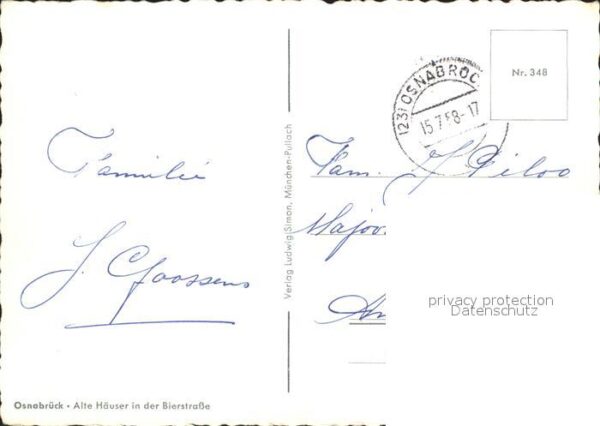 Familie
J. Goossens
Osnabrück · Alte Häuser in der Bierstraße
Verlag Ludwig Simon, München-Pullach
(23) OSNABRÜC
15.7.58-17
Nr. 348
Fam. J
Major
privacy protection
Datenschutz